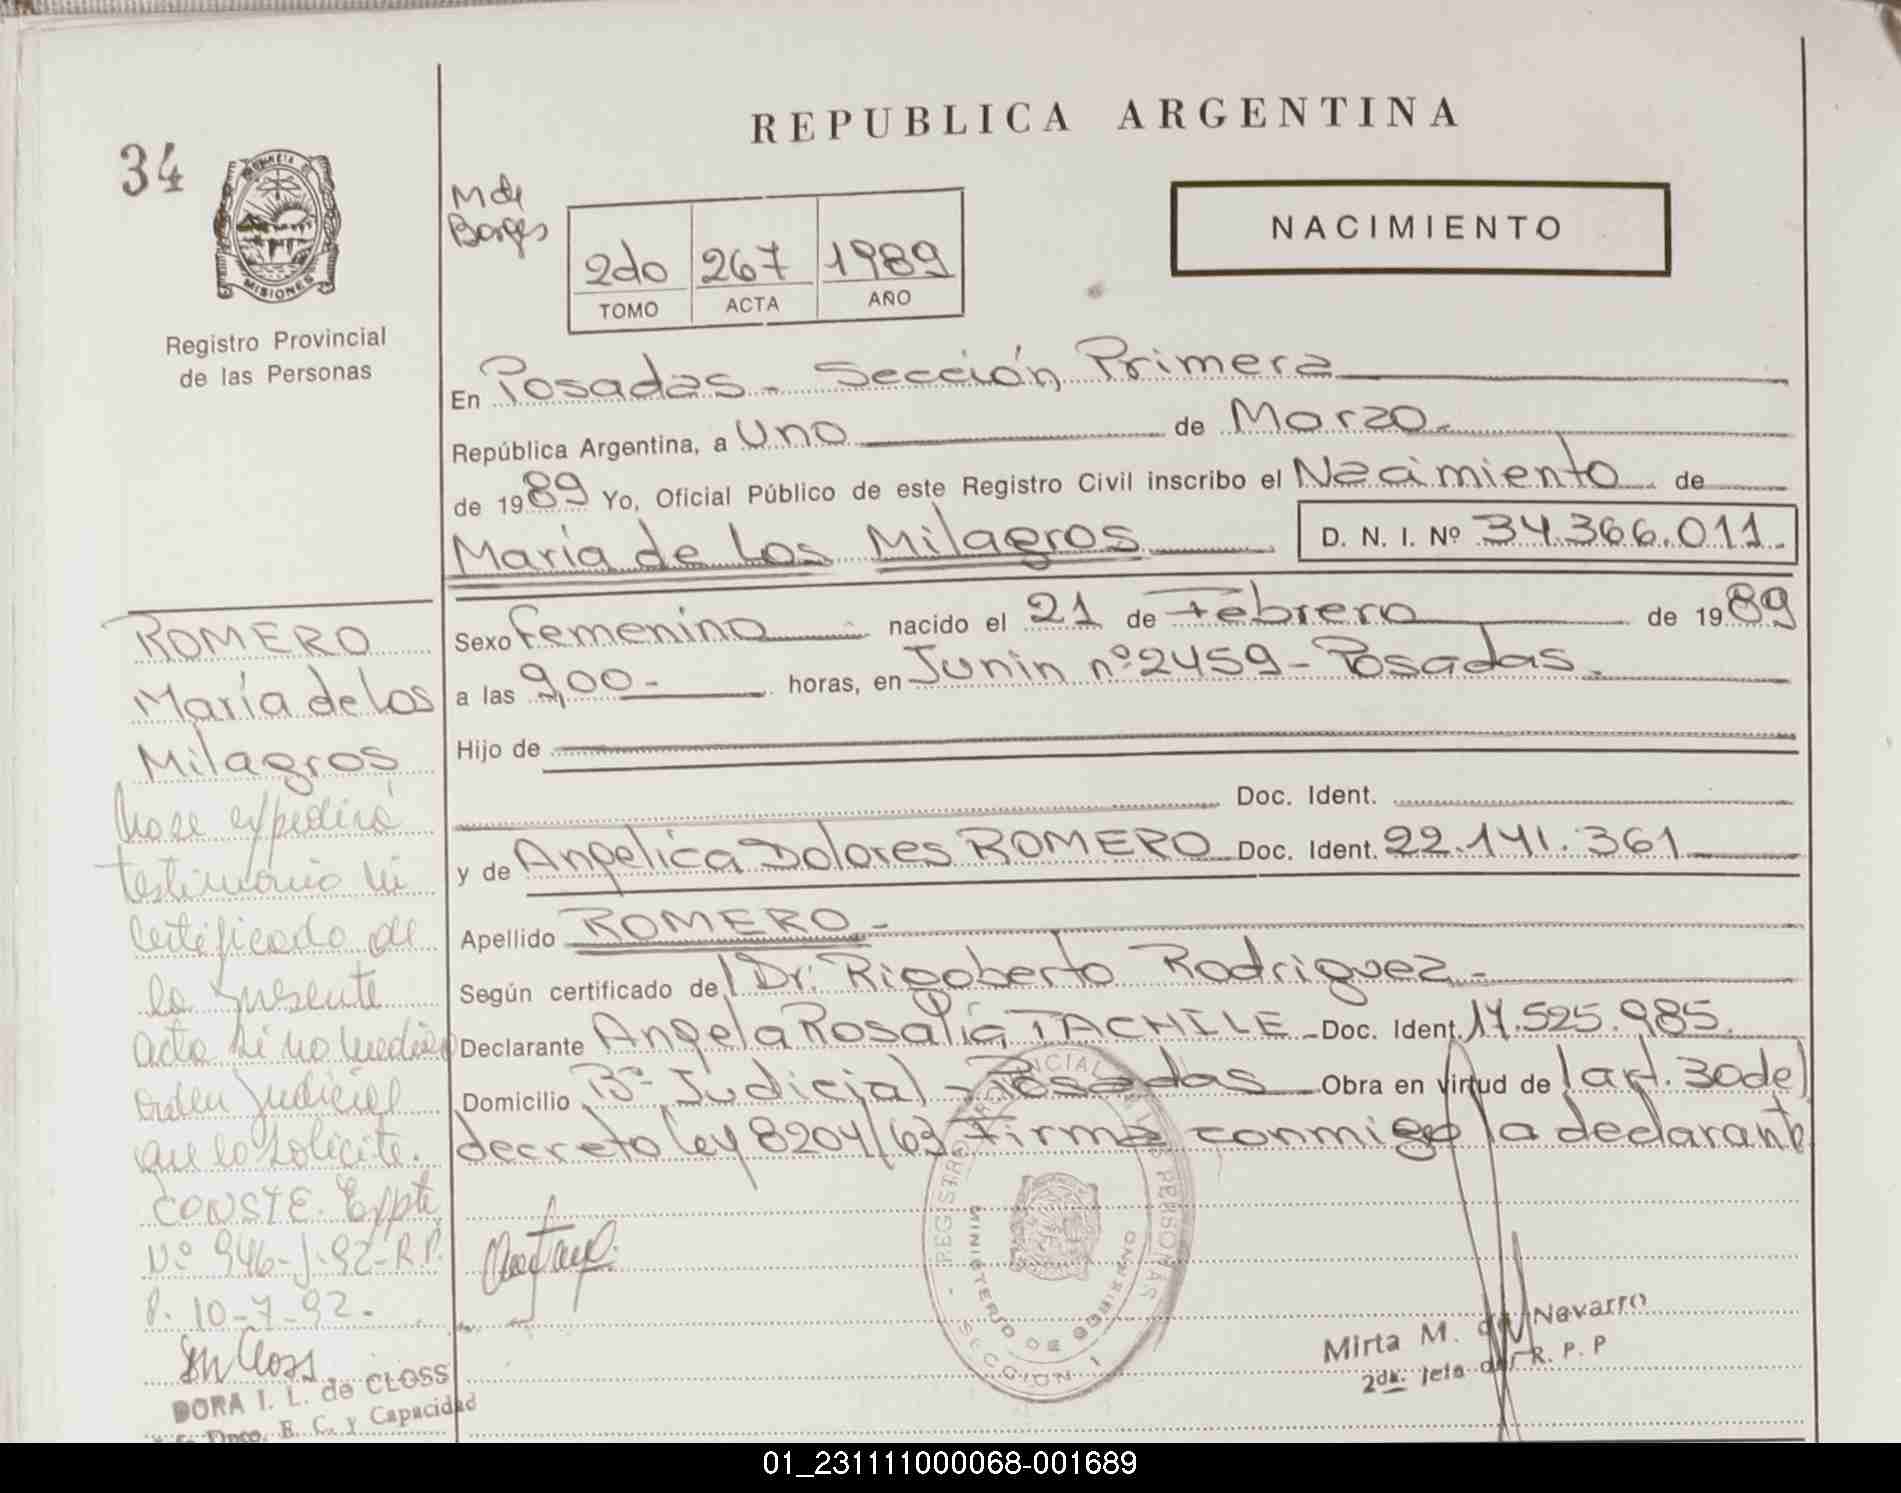 REPUBLICA ARGENTINA
34
PROVINCIA DE
MISIONES
Registro Provincial
de las Personas
M de
Borges
2do 267 1989
TOMO ACTA AÑO
NACIMIENTO
En Posadas - Sección Primera
República Argentina, a Uno de Marzo.
de 1989 Yo, Oficial Público de este Registro Civil inscribo el Nacimiento de
María de Los Milagros D. N. I. Nº 34.366.011.
Sexo Femenino nacido el 21 de Febrero de 1989
a las 9,00- horas, en Junin nº 2459 - Posadas.
Hijo de
Doc. Ident.
y de Angelica Dolores ROMERO Doc. Ident. 22.141.361
Apellido ROMERO -
Según certificado del Dr. Rigoberto Rodriguez -
Declarante Angela Rosalia TACHILE - Doc. Ident. 17.525.985.
Domicilio Bº Judicial - Posadas Obra en virtud de l art. 30 del
decreto ley 8204/63 Firma conmigo la declarante
ROMERO
María de Los
Milagros
No se expedirá
testimonio ni
certificado de
la presente
acta si no media
orden Judicial
que lo solicite.
CONSTE. Expte
Nº 946-J-92-R.P.
P. 10-7-92.
DORA I. L. de CLOSS
Dpto. E. C. y Capacidad
REGISTRO PROVINCIAL DE LAS PERSONAS
MINISTERIO DE GOBIERNO
SECCION 1
Mirta M. de Navarro
2da. Jefa del R. P. P
01_231111000068-001689